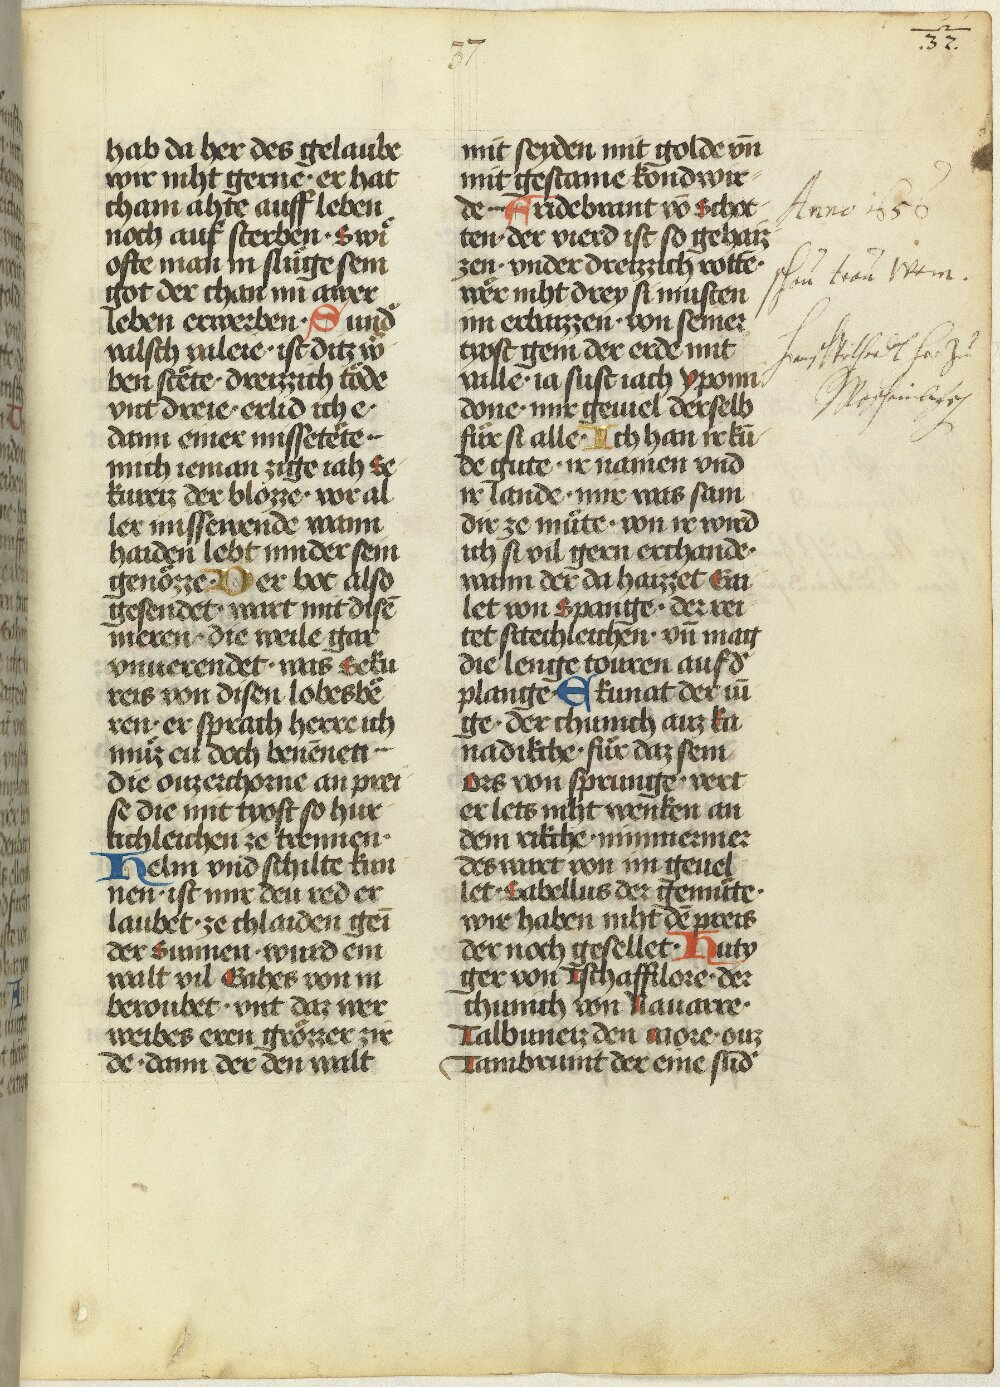 37
.32.
hab da her des gelaube
wir niht gerne · er hat
cham ahte auff leben
noch auf sterben · Swi
ofte man in slu̇ge sein
got der chan im awer
leben erwerben · Sund
valsch valere · ist ditz wͦ
ben stête · dreizzich tȯde
vnt dreie · erlid ich e ·
dann einer missetête ·
mich ieman zige iah Se
kureiz der blozze · vor al
ler missewende wann
haiden lebt ninder sein
genȯzze · Der bot also
gesendet · wart mit disē
meren · die weile gar
vnuerendet · was Seku
reis von disen lobesbê
ren · er sprach herre ich
mu̇z eu doch benēnen
die ouzerchorne an prei
se die mit tyost so hur
tichleichen ze trennen ·
Helm vnd schilte kun
nen · ist mir deu red er
laubet · ze chlaiden geī
der Sunnen · wurd ein
walt vil Gahes von in
beroubet · vnt daz wer
weibes eren grȯzzer zir
de · dann der den walt
mit seyden mit golde vn̄
mit gestaine kondwir
de · Fridebrant vō Schot
ten · der vierd ist so gehaiz
zen · vnder dreizzich rotte ·
wêr niht drey si musten
im erbaizzen · von seiner
tyost gein der erde mit
valle · ia sust iach yponi
done · mir geuiel derselb
fu̇r si alle · Ich han ir kū
de gute · ir namen vnd
ir lande · mir was sam
dir ze mu̇te · von ir wird
ich si vil gern erchande ·
wann der da haizzet Gai
let von Spange · der rei
tet stechleichen · vn̄ mag
die lenge touren auf dͦ
plange Ekunat der iū
ge · der chunich auz ka
nadikche · fu̇r daz sein
Ors von sprunge · vert
er lets niht wenken an
dem rikche · nimmermer
des varet von im geuel
let · Gabellus der gemu̇te ·
wir haben niht dē preis
der noch gesellet · Huty
ger von Tschaffilore · der
chunich von Nauarre ·
Talbuneiz den more · ouz
Tambrunit der eine sūd
Anno 1658
schau trau Wem .